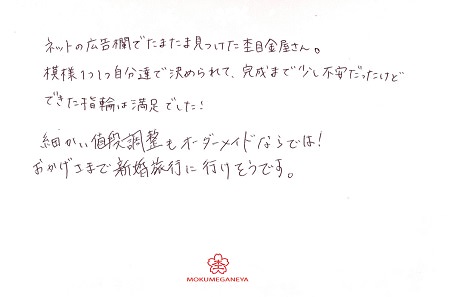 ネットの広告欄でたまたま見つけた杢目金屋さん。
模様1つ1つ自分達で決められて、完成まで少し不安だったけど
できた指輪は満足でした！
細かい値段調整もオーダーメイドならでは！
おかげさまで新婚旅行に行けそうです。
MOKUMEGANEYA